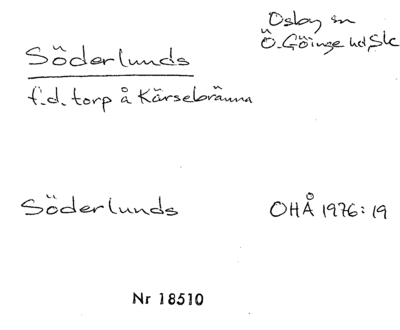 Osby sn
Ö. Göinge hd Sk
Söderlunds
f.d. torp å Kärsebränna
Söderlunds
OHÅ 1976:19
Nr 18510